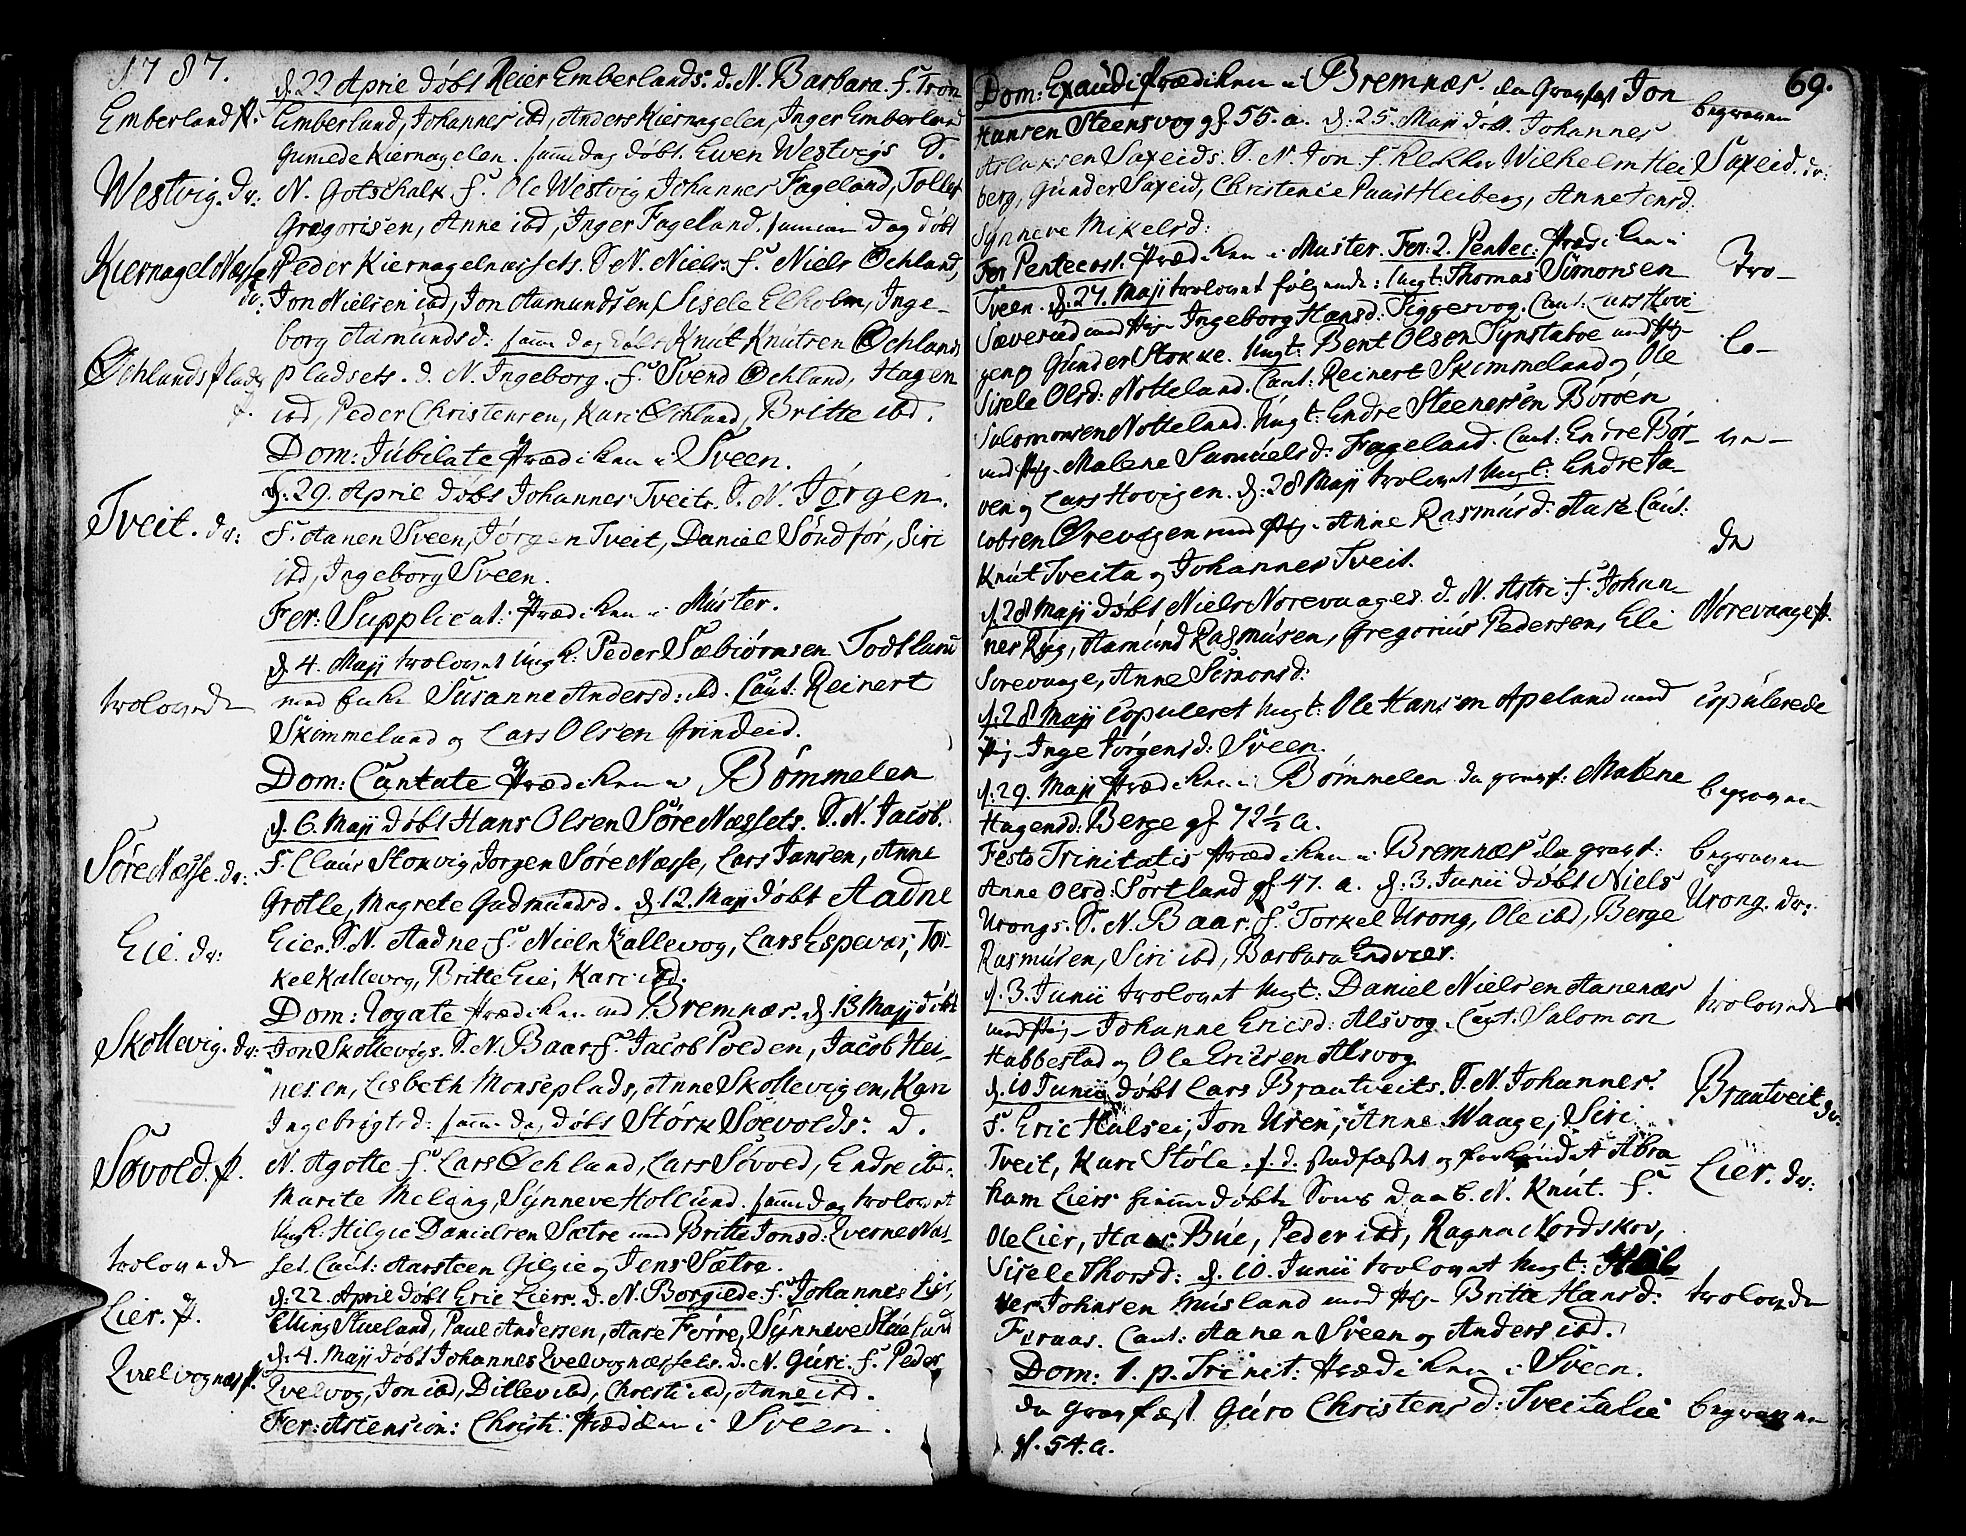 1787.
d. 22 April døbt Reier Emberlands. d. N. Barbara. f. Tron
Emberland p: Emberland, Johannes ibd, Anders Kiernagelen, Inger Emberland
Gunilde Kiernagelen. samme dag døbt Ewen Westvigs S.
Westvig. dr: N. Gotschalk f. Ole Westvig, Johannes Fageland, Tollef
Gregorisen, Anne ibd, Inger Fageland. samme dag døbt
Kiernagel Næsse dr: Peder Kiernagelnæssets. S. N. Niels. f. Niels Øchland,
Jon Nielsen ibd, Jon Aamundsen, Sisele Elholm, Inge-
borg Aamundsd: samme dag døbt Knut Knutsen Øchlands
Øchlands plads p. pladsets. d. N. Ingeborg. f. Svend Øchland, Hagen
ibd, Peder Christensen, Kari Øchland, Britte ibd.
Dom: Jubilate Prædiken i Sveen.
d. 29. April døbt Johannes Tveits. S. N. Jørgen.
Tveit. dr: f. Aanen Sveen, Jørgen Tveit, Daniel Søndfør, Siri
ibd, Ingeborg Sveen.
Fer: Supplicat: Prædiken i Muster.
d. 4. Maji trolovet Ungk: Peder Sæbiørnsen Todtland
trolovede med Enke Susanne Andersd: ibd. Caut: Reinert
Skimmeland og Lars Olsen Grindeid.
Dom: Cantate Prædiken i Bømmelen
d. 6. Maji døbt Hans Olsen Søre Næssets. S. N. Jacob.
Søre Næsse. dr: f. Claus Stonvig, Jørgen Søre Næsse, Lars Jansen, Anne
Grotle, Magrete Gudmundsd. d. 12. Maji døbt Aadne
Eie. dr: Eies. S. N. Aadne f. Niels Kallevog, Lars Espevær, Tor-
kel Kallevog, Britte Eie, Kari ibd.
Dom: Rogate Prædiken ved Bremnæs. d. 13 Maji døbt
Skollevig. dr: Jon Skollevigs. S. N. Baar f. Jacob Poeden, Jacob Hei-
nesen, Lisbeth Monseplads, Anne Skollevigen, Kari
Ingebrigtsd: samme dag døbt Størk Søevolds: d.
Søvold. p. N. Agotte f. Lars Øchland, Lars Søvold, Endre ibd.
Marite Meling, Synneve Hollund. samme dag trolovet
Ungk: Hilgie Danielsen Sætre med Britte Jonsd: Qverne Næs-
trolovede set. Caut: Aarsteen Gilgie og Jens Sætre.
d. 22. April døbt Eric Liers. d. N. Borgilde f. Johannes Lier,
Lier. p. Elling Stueland, Paul Andersen, Aase Førre, Synneve
d. 4. Maji døbt Johannes Qvelvognæssets. d. N. Guri. f. Peder
Qvelvognæs p. Qvelvog, Jon ibd, Ditlev ibd, Christi ibd, Anne ibd.
Fer: Ascension: Christi Prædiken i Sveen.
69.
Dom: Exaudi Prædiken i Bremnæs. da Gravfæst Jon
Hansen Steensvog gl. 55. a. d. 25. Maji døbt Johannes begraven
Aslaksen Saxeids. S. N. Jon f. Klokker Wilhelm Hei- Saxeid. dr:
berg, Gunder Saxeid, Christence Paust Heiberg, Anne Jensd:
Synneve Mikelsd:
Fer Pentecost: Prædiken i Muster. Fer: 2. Pentec: Prædiken i
Sveen. d. 27. Maji trolovet følgende: Ungk: Thomas Simonsen tro-
Sæverud med Pige Ingeborg Hansd: Siggervog. Caut: Lars Hovi-
gen og Gunder Stokke. Ungk: Bent Olsen Synstabøe med Pige lo-
Sisele Olsd: Notteland. Caut: Reinert Skimmeland og Ole
Salomonsen Notteland. Ungk: Endre Steensen Børøen
med Pige Malene Samuelsd: Fageland. Caut: Endre Bør- ve-
ven og Lars Hovigen. d: 28 Maji trolovet Ungk: Endre Ja-
cobsen Ørevigen med Pige Anne Rasmusd: Aase Caut: de
Knut Tveita og Johannes Tveit.
d. 28 Maji døbt Niels Norevaages. d. N. Astri f. Johan- Norevaage p.
nes Røg, Aamund Rasmusen, Gregorius Pedersen, Eli
Sorevaage, Anne Simonsd:
d. 28 Maji Copuleret Ungk: Ole Hansen Apeland med Copulerede
Pige Inge Jørgensd: Sveen.
d. 29. Maji Prædiken i Bømmelen da gravf: Malene begraven
Hagensd: Berge gl. 72½ a.
Festo Trinitatis Prædiken i Bremnæs da gravf: begraven
Anne Olsd: Sortland gl 47. a. d. 3. Junii døbt Niels
Urongs. S. N. Baar. f. Torkel Urong, Ole ibd, Berge Urong. dr:
Rasmusen, Siri ibd, Barbara Endvær.
d. 3. Junii trolovet Ungk: Daniel Nielsen Aanenæs trolovede
med Pige Johanne Ericsd: Alsvog. Caut: Salomon
Habbestad og Ole Ericsen Alsvog
d. 10 Junii døbt Lars Brautveits. S. N. Johannes. Brautveit dr:
f. Eric Hulsei, Jon Uren, Anne Waage, Siri
Tveit, Kari Støle. s. d. stadfæstet og forkyndet Abra-
ham Liers hiemmedøbte Søns Daab. N. Knut. f. Lier. dr:
Ole Lier, Hans Bue, Peder ibd, Ragna Nordskov,
Sisele Thorsd: d. 10. Junii trolovet Ungk:
Johnsen Musland med Pige Britta Hansd: trolovede
Foraas. Caut: Aanen Sveen og Anders ibd.
Dom: 1. p. Trinit: Prædiken i Sveen.
da gravfæst Guro Christensd: Tveitalie begraven
gl. 54. a.